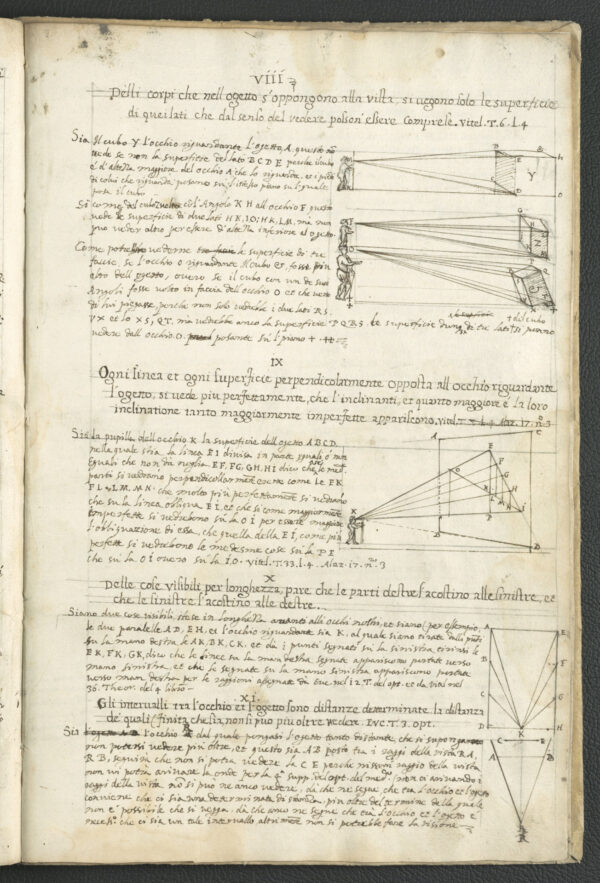 VIII
Delli corpi che nell ogetto s'oppongono alla vista, si vegono solo le superficie
di quei lati che dal senso del vedere posson' essere comprese. vitel. T. 6. l. 4
Sia Il cubo Y l'occhio riguardante l'ogetto A, questo no
vede se non la superficie del lato B C D E perche il cubo
è d'altezza maggiore del occhio A che lo riguarda, et i piedi
di colui che riguarda posano su l'istesso piano su il quale
posa il cubo
Si come del cubo col'Angolo K H all occhio F questo
vede de superficie di due lati HK, IO; HK, LM, ma non
puo veder altro per essere d'altezza inferiore al ogetto.
Come potrebbe vederne la superficie di tre
faccie se l'occhio O riguardante il cubo fosse piu
alto dell ogetto, overo se il cubo con un de suoi
Angoli fosse volto in faccia dell occhio O et che verso
di lui perche non solo vedrebbe i due lati R S,
V X et lo X S, Q T. ma vedrebbe anco la superficie P Q R S
vedere dall occhio O. posante su'l piano +
IX
Ogni linea et ogni superficie perpendicolarmente opposta all occhio riguardante
l'ogetto, si vede piu perfettamente, che l'inclinanti, et quanto maggiore è la loro
inclinatione tanto maggiormente imperfette appariscono. vitel.
Sia la pupilla dell occhio K la superficie dell ogetto A B C D
nella quale stia la linea E I divisa in parte
Eguali che non da meglio E F, F G, G H, H I dico che
parti si vedrano perpendicolarmente come le E K
F L, L M, M N. che molto più perfettamente si vedrano
che su la linea obliqua E I, et che si come maggiormente
imperfette si vedrebono su la O I per essere maggiore
l'obliquatione di essa, che quella della E I, come più
perfette si vedrebono le medesime cose su la P E
che su la O I overo su la I O. vitel. T. 33. l. 4. Alaz. 17. n. 3
X
Delle cose visibili per longhezza, pare che le parti destre s'acostino alle sinistre, et
che le sinistre s'acostino alle destre.
Siano due cose visibili stese in longhezza avanti alli occhi nostri, et siano per esempio
le due paralelle A D, E H, et l'occhio riguardante sia K, al quale siano tirate dalli punti
su la mano destra le A K, B K, C K, et da i punti segnati su la sinistra tirinsi le
E K, F K, G K, dico che le linee su la man destra segnate appariscono portate verso
mano sinistra, et che le segnate su la mano sinistra appariscono portate
verso man destra per le raggioni assegnate da Eve nel 12 T. del opt. et da Vitel nel
36. Theor. del 4 libro
XI.
Gli intervalli tra l'occhio et l'ogetto sono distanze determinate, la distanza
de quali finita che sia non si può piu oltre vedere. Evc. T. 3. opt.
Sia l'occhio R dal quale pongasi l'ogetto tanto distante che si suponga
non potersi vedere più oltre, et questo sia A B posto tra i raggi della vista R A,
R B, seguira che non si potra vedere la C E perche nissun raggio della vista
non vi potra arivare la onde per la 4a supp. del opt. del med. non ci arivando i
raggi della vista no si puo ne anco vedere, da che ne segue che tra l'occhio et l'ogetto
conviene che ci sia una determinata distanza, più oltre del termine della quale
non è possibile che si vegga, da che anco ne segue che tra l'occhio et l'ogetto è
neces. che ci sia un tale intervallo altrimente non si potrebbe fare la visione